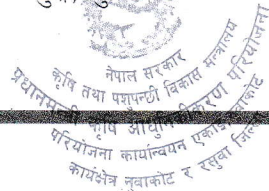 नेपाल सरकार
कृषि तथा पशुपन्छी विकास मन्त्रालय
प्रधानमन्त्री कृषि आधुनिकीकरण परियोजना
परियोजना कार्यान्वयन एकाई
कार्यक्षेत्र नुवाकोट र रसुवा